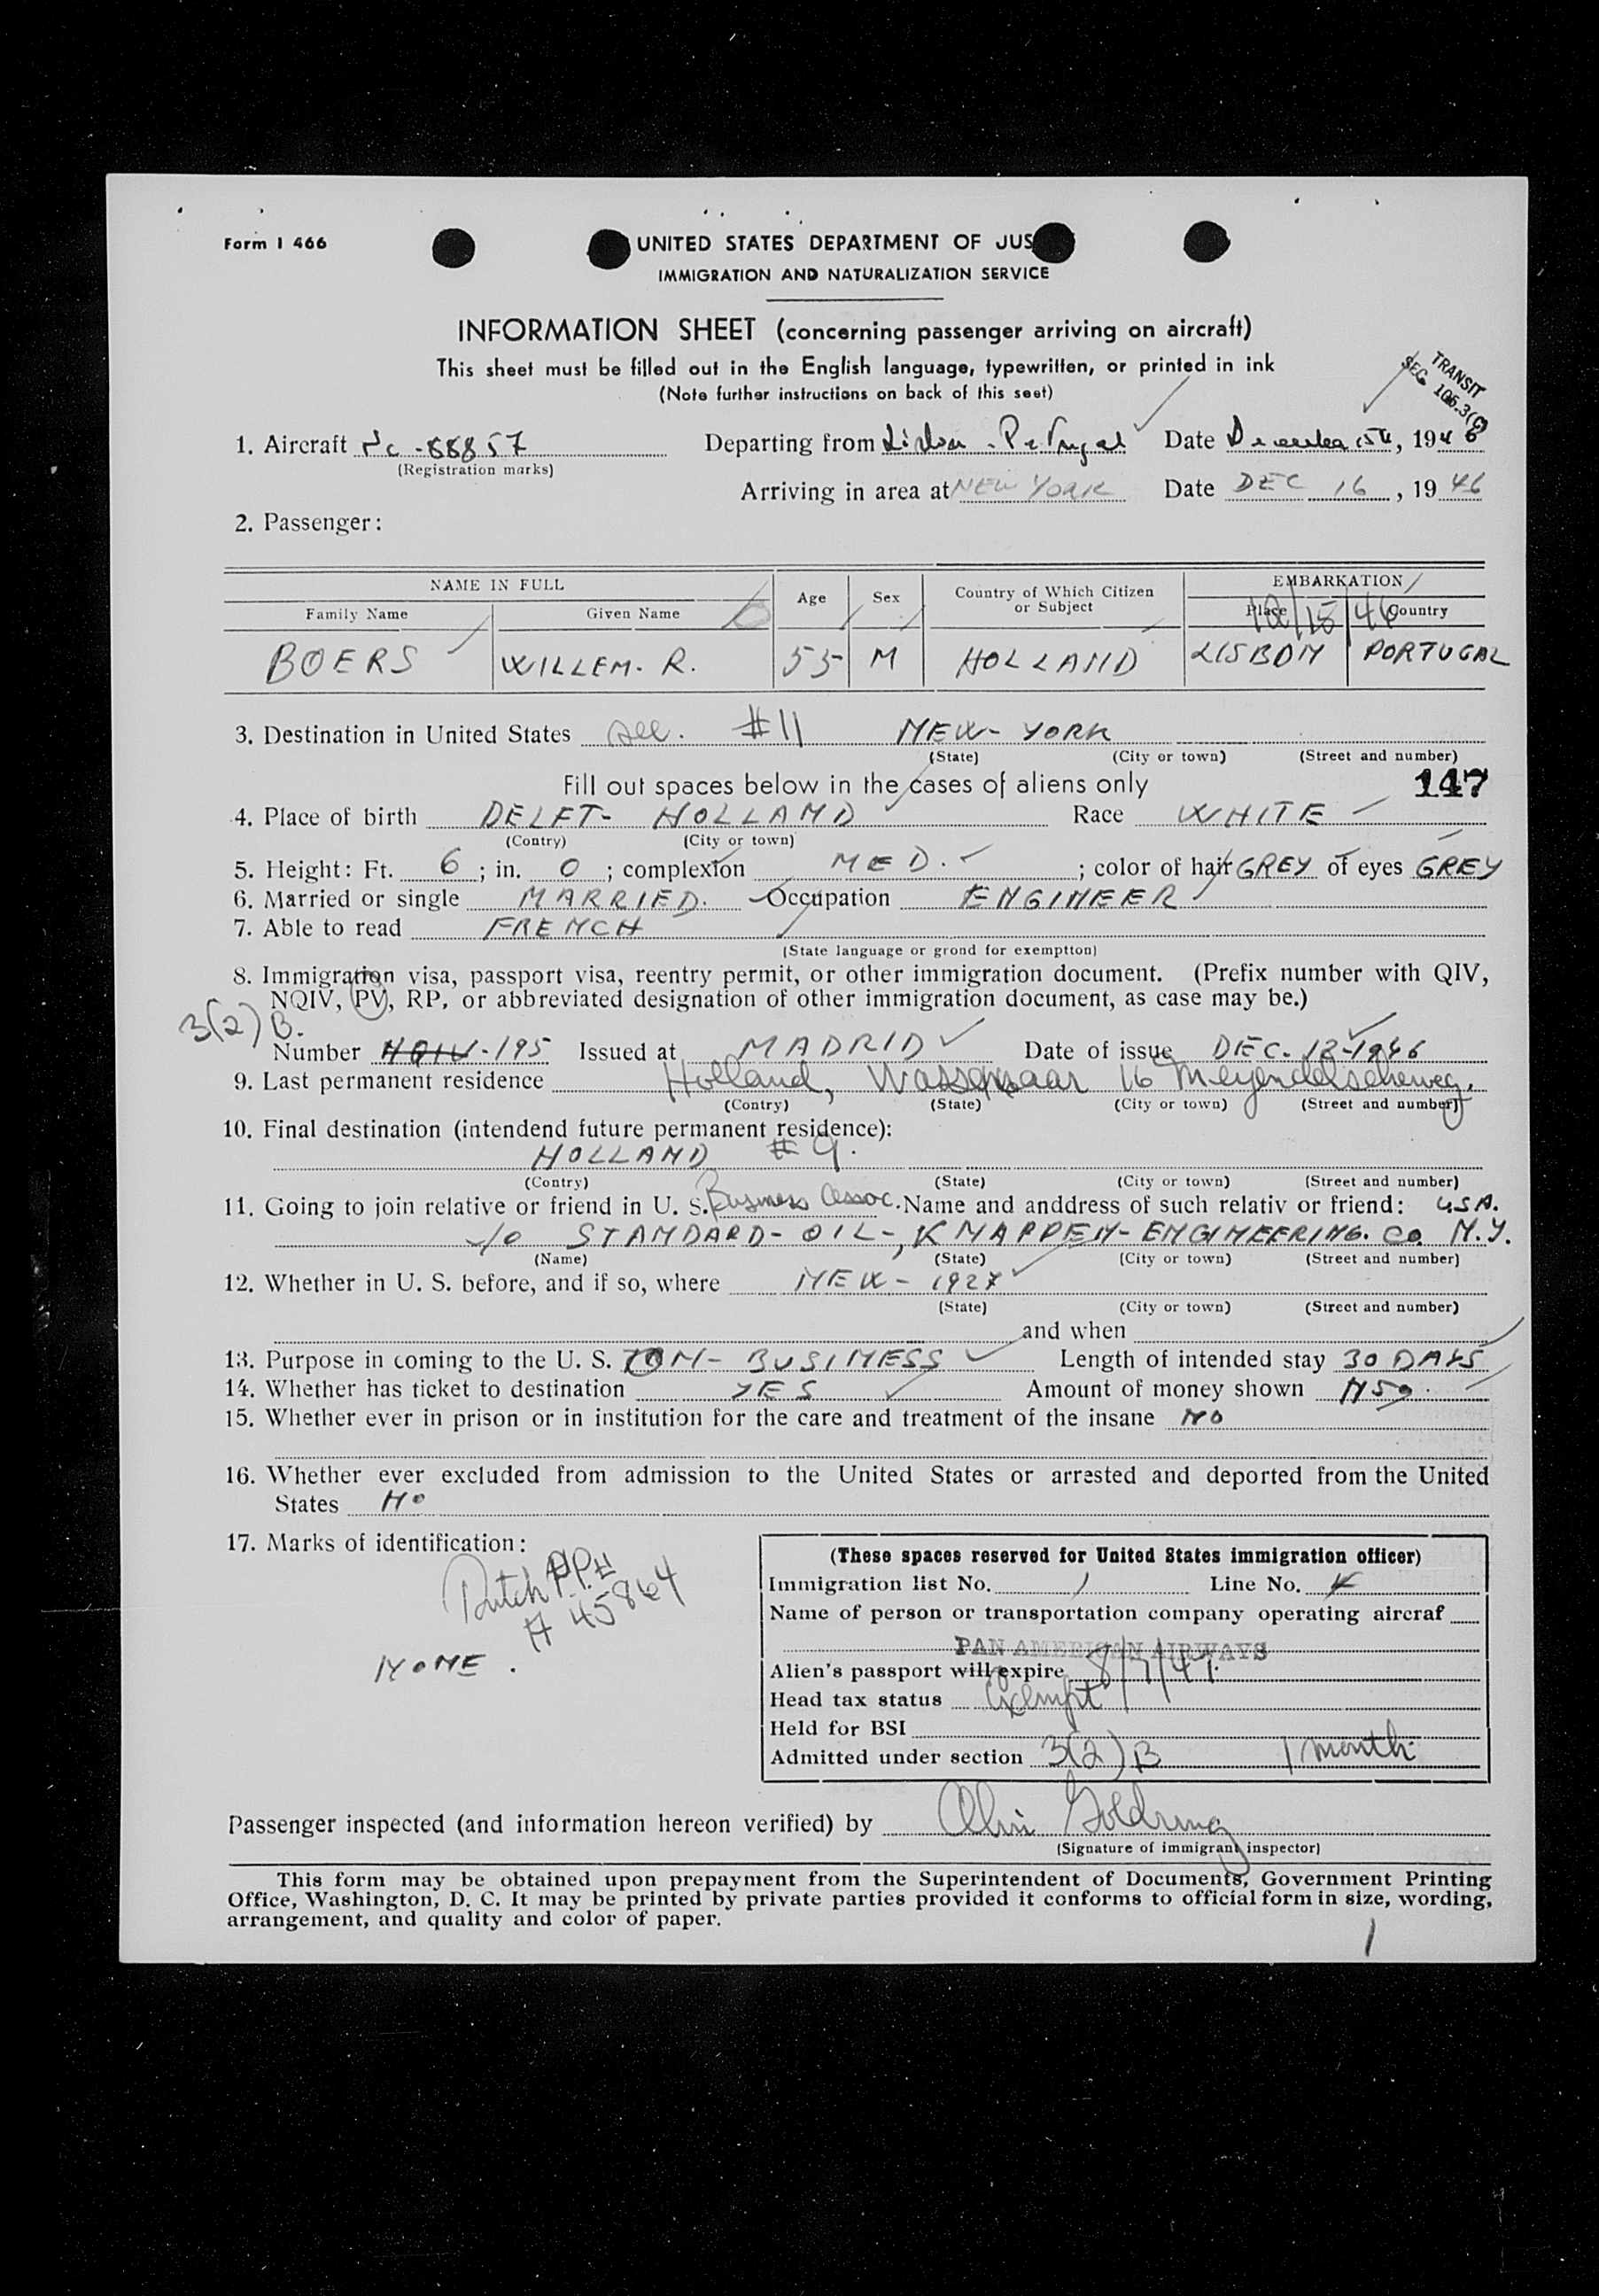 Form I 466
UNITED STATES DEPARTMENT OF JUS
IMMIGRATION AND NATURALIZATION SERVICE
INFORMATION SHEET (concerning passenger arriving on aircraft)
This sheet must be filled out in the English language, typewritten, or printed in ink
(Note further instructions on back of this seet)
TRANSIT
SEC 106.3(C)
1. Aircraft Nc-88857 Departing from Lisbon-Portugal Date December 15th, 1946
(Registration marks)
Arriving in area at NEW YORK Date DEC 16, 1946
2. Passenger:
NAME IN FULL Age Sex Country of Which Citizen or Subject EMBARKATION
Family Name Given Name Place Country
12/15/46
BOERS WILLEM. R. 55 M HOLLAND LISBON PORTUGAL
3. Destination in United States See. #11 NEW-YORK
(State) (City or town) (Street and number)
Fill out spaces below in the cases of aliens only 147
4. Place of birth DELFT- HOLLAND Race WHITE
(Contry) (City or town)
5. Height: Ft. 6; in. 0; complexion MED. ; color of hair GREY of eyes GREY
6. Married or single MARRIED. Occupation ENGINEER
7. Able to read FRENCH
(State language or grond for exemptton)
8. Immigration visa, passport visa, reentry permit, or other immigration document. (Prefix number with QIV,
NQIV, PV, RP, or abbreviated designation of other immigration document, as case may be.)
3(2)B.
Number NQIV-195 Issued at MADRID Date of issue DEC. 12-1946
9. Last permanent residence Holland, Wassenaar 16
(Contry) (State) (City or town) (Street and number)
10. Final destination (intendend future permanent residence):
HOLLAND #9.
(Contry) (State) (City or town) (Street and number)
11. Going to join relative or friend in U. S. Business Assoc. Name and anddress of such relativ or friend: USA.
c/o STANDARD-OIL-, KNAPPEN-ENGINEERING. Co. N.Y.
(Name) (State) (City or town) (Street and number)
12. Whether in U. S. before, and if so, where NEW - 1927
(State) (City or town) (Street and number)
and when
13. Purpose in coming to the U. S. ON-BUSINESS Length of intended stay 30 DAYS
14. Whether has ticket to destination YES Amount of money shown
15. Whether ever in prison or in institution for the care and treatment of the insane NO
16. Whether ever excluded from admission to the United States or arrested and deported from the United
States No
17. Marks of identification:
Dutch P.P.
# 45864
NONE.
(These spaces reserved for United States immigration officer)
Immigration list No. 1 Line No. 4
Name of person or transportation company operating aircraf
PAN AMERICAN AIRWAYS
Alien's passport will expire 8/7/47.
Head tax status Exempt
Held for BSI
Admitted under section 3(2)B 1 month
Passenger inspected (and information hereon verified) by Goldring
(Signature of immigrant inspector)
This form may be obtained upon prepayment from the Superintendent of Documents, Government Printing
Office, Washington, D. C. It may be printed by private parties provided it conforms to official form in size, wording,
arrangement, and quality and color of paper.
1